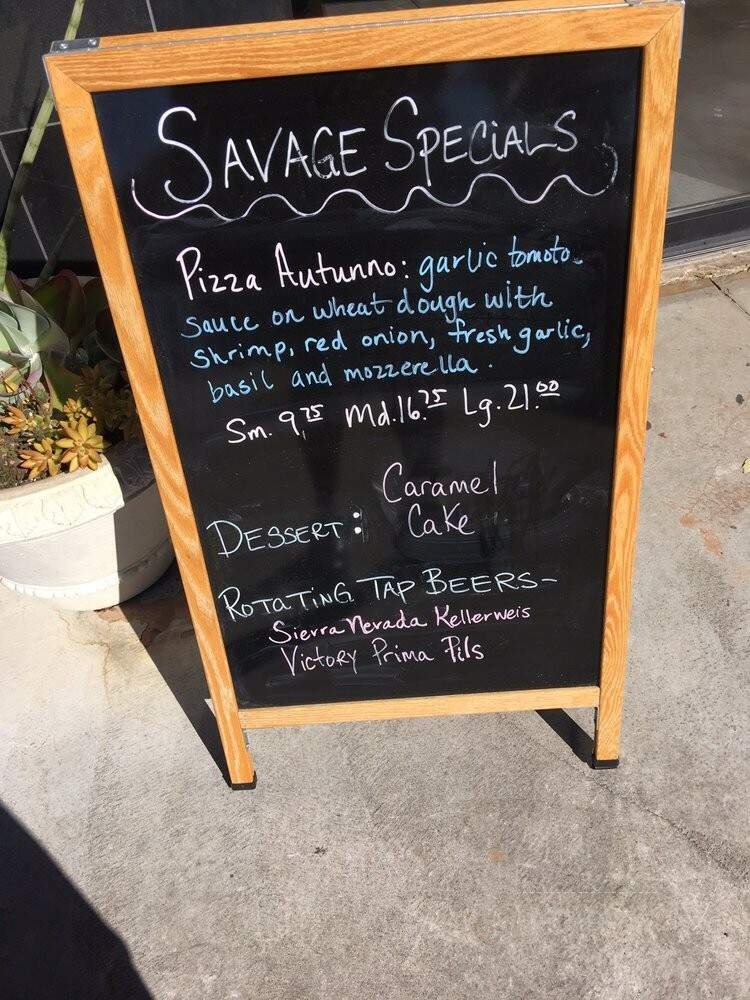 SAVAGE SPECiALS
Pizza Autunno: garlic tomato
sauce on wheat dough with
shrimp, red onion, fresh garlic,
basil and mozzerella.
Sm. 9.75 Md.16.75 Lg.21.00
DESSERT: Caramel
Cake
ROTATiNG TAP BEERS-
Sierra Nevada Kellerweis
Victory Prima Pils